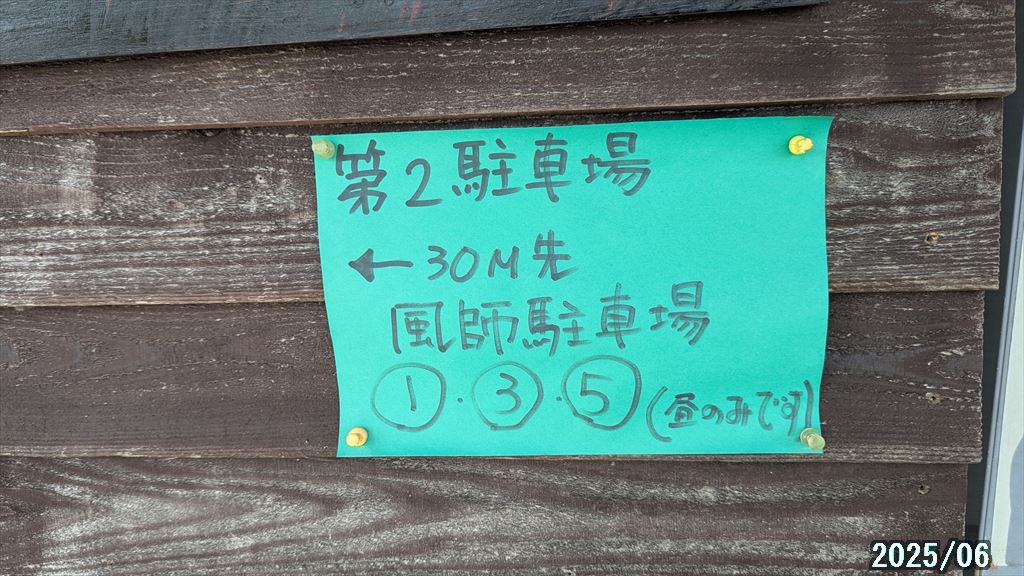 第2駐車場
← 30M先
風師駐車場
①・③・⑤(昼のみです)
2025/06